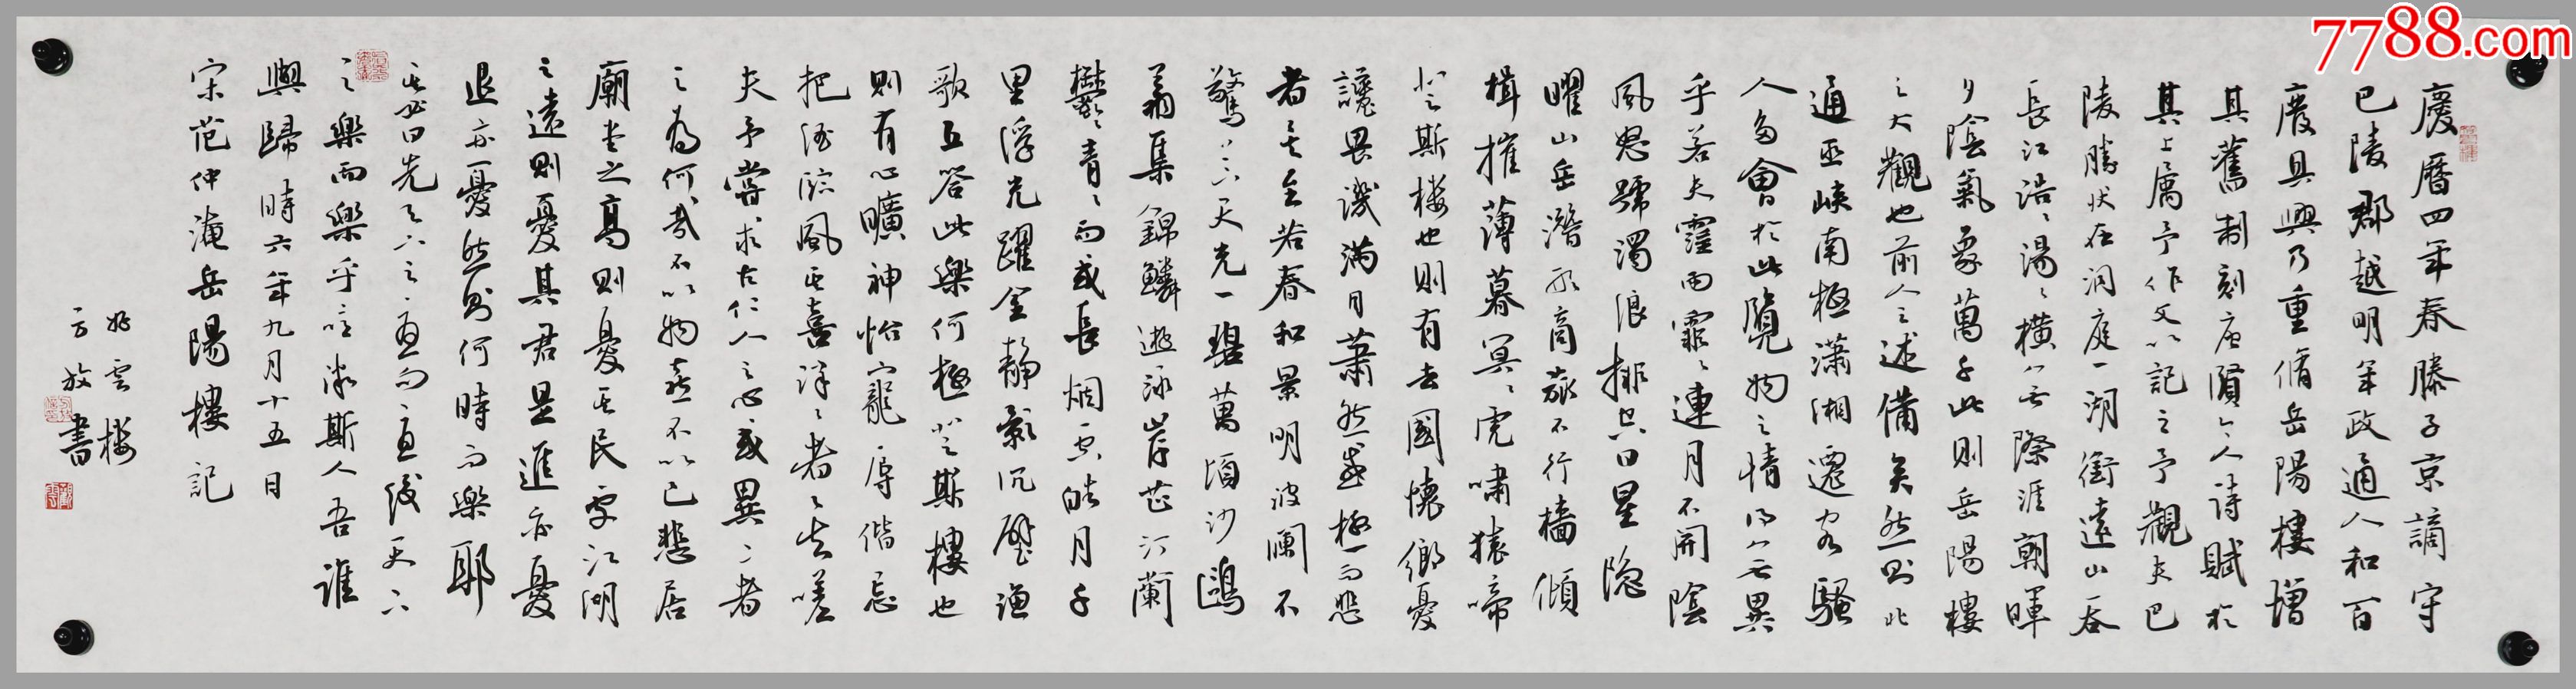 7788.com
慶曆四年春滕子京謫守
巴陵郡越明年政通人和百
廢具興乃重脩岳陽樓增
其舊制刻唐賢今人詩賦於
其上屬予作文以記之予觀夫巴
陵勝狀在洞庭一湖銜遠山吞
長江浩〻湯〻橫無際涯朝暉
夕陰氣象萬千此則岳陽樓
之大觀也前人之述備矣然則北
通巫峽南極瀟湘遷客騷
人多會於此覽物之情得無異
乎若夫霪雨霏〻連月不開陰
風怒號濁浪排空日星隱
曜山岳潛形商旅不行檣傾
楫摧薄暮冥〻虎嘯猿啼
登斯楼也則有去國懷鄉憂
讒畏譏滿目蕭然感極而悲
者矣至若春和景明波瀾不
驚上下天光一碧萬頃沙鷗
翔集錦鱗遊泳岸芷汀蘭
鬱〻青〻而或長烟一空皓月千
里浮光躍金靜影沉璧漁
歌互答此樂何極登斯樓也
則有心曠神怡寵辱偕忘
把酒臨風其喜洋〻者〻矣嗟
夫予嘗求古仁人之心或異二者
之為何哉不以物喜不以己悲居
廟堂之高則憂其民處江湖
之遠則憂其君是進亦憂
退亦憂然則何時而樂耶
其必曰先天下之憂而憂後天下
之樂而樂乎噫微斯人吾誰
與歸時六年九月十五日
宋范仲淹岳陽樓記
好雲樓
方放書